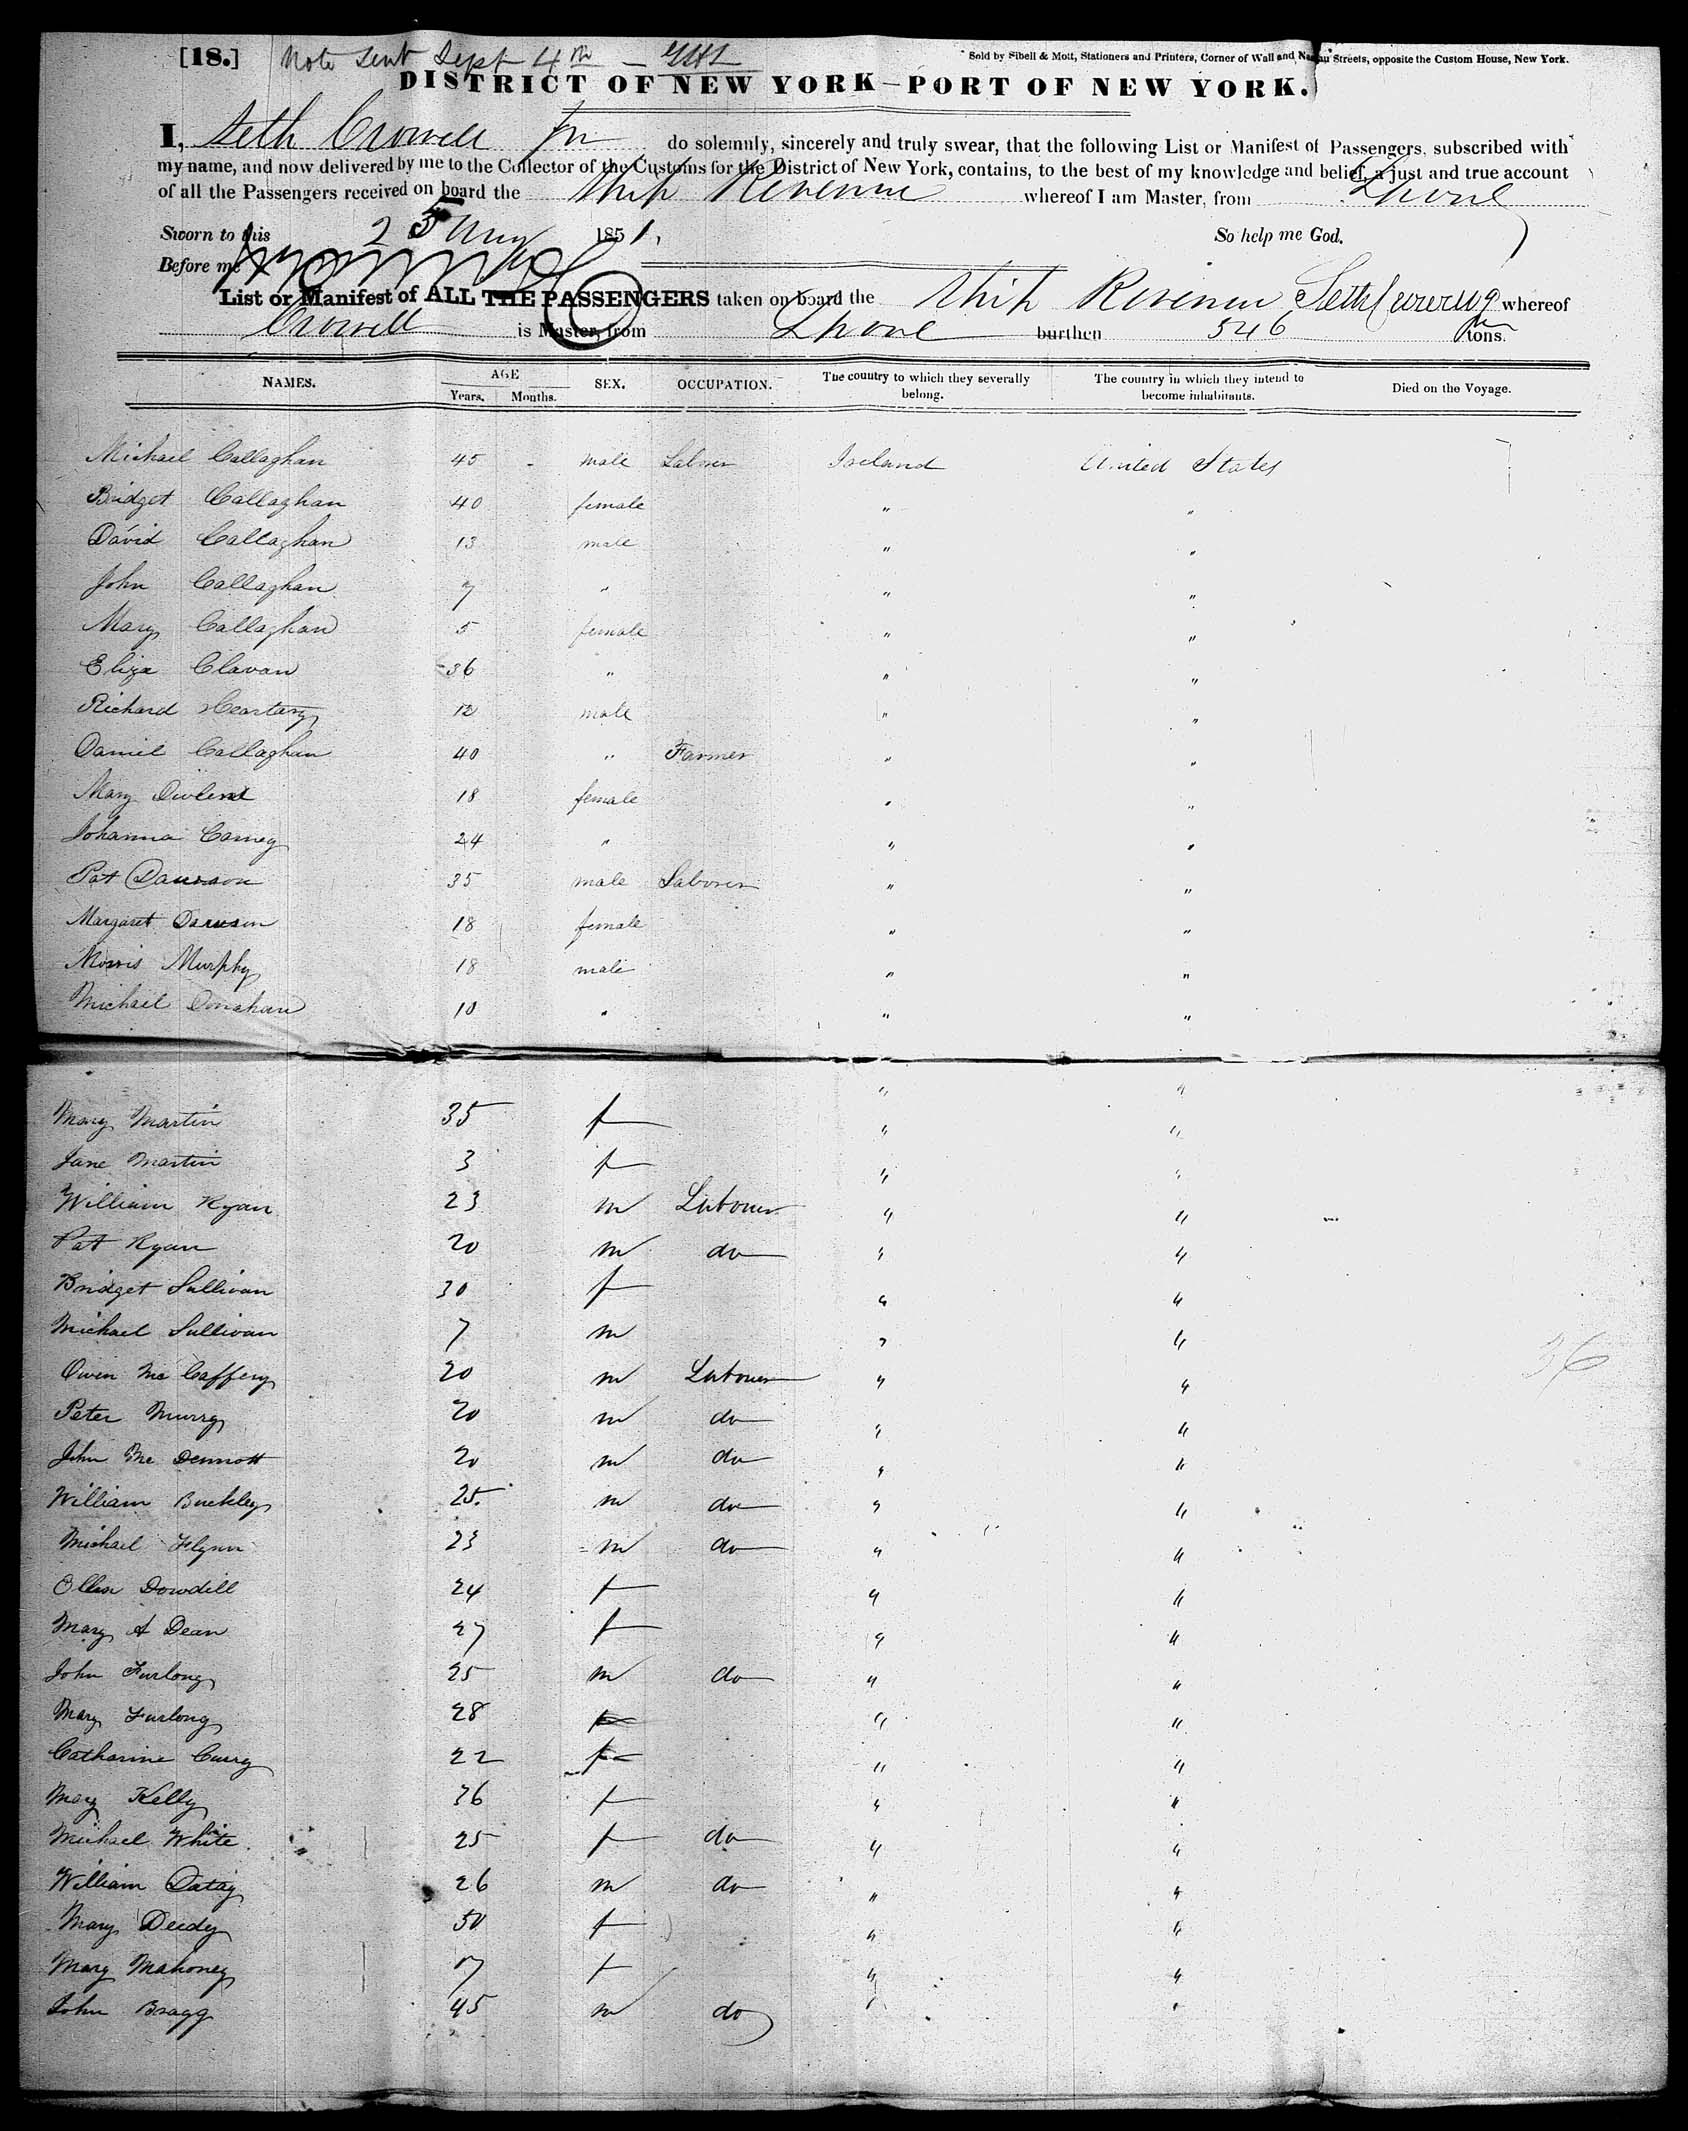 [18.] Note sent Sept 4th
Sold by Sibell & Mott, Stationers and Printers, Corner of Wall and Nassau Streets, opposite the Custom House, New York.
DISTRICT OF NEW YORK—PORT OF NEW YORK.
I, Seth Crowell Jn do solemnly, sincerely and truly swear, that the following List or Manifest of Passengers, subscribed with
my name, and now delivered by me to the Collector of the Customs for the District of New York, contains, to the best of my knowledge and belief, a just and true account
of all the Passengers received on board the Ship Revenue whereof I am Master, from Lpool
Sworn to this 25 Aug 1851, So help me God.
Before me
List or Manifest of ALL THE PASSENGERS taken on board the Ship Revenue Seth whereof
Crowell is Master, from Lpool burthen 546 tons.
NAMES. AGE SEX. OCCUPATION. The country to which they severally belong. The country in which they intend to become inhabitants. Died on the Voyage.
Years. Months.
Michael Callaghan 45 - male Labrer Ireland United States
Bridget Callaghan 40 female " "
David Callaghan 13 male " "
John Callaghan 7 " " "
Mary Callaghan 5 female " "
Eliza Clavan 36 " " "
Richard 12 male " "
Daniel Callaghan 40 " Farmer " "
Mary 18 female " "
Johanna Carney 24 " " "
Pat Dawson 35 male Laborer " "
Margaret Dawson 18 female " "
Morris Murphy 18 male " "
Michael Donahan 10 " " "
" "
Mary Martin 35 f " "
Jane Martin 3 f " "
William Ryan 23 m Labourer " "
Pat Ryan 20 m do " "
Bridget Sullivan 30 f " "
Michael Sullivan 7 m " "
36
Owen Mc Caffery 20 m Labourer " "
Peter Murry 20 m do " "
John Mc Dermott 20 m do " "
William Buckley 25 m do " "
Michael Flynn 23 m do " "
Ellen Dowdill 24 f " "
Mary A Dean 27 f " "
John Furlong 25 m do " "
Mary Furlong 28 f " "
Catharine Curry 22 f " "
Mary Kelly 36 f " "
Michael White 25 f do " "
William 26 m do " "
Mary Deedy 50 f " "
Mary Mahoney 17 f " "
John Bragg 45 m do " "